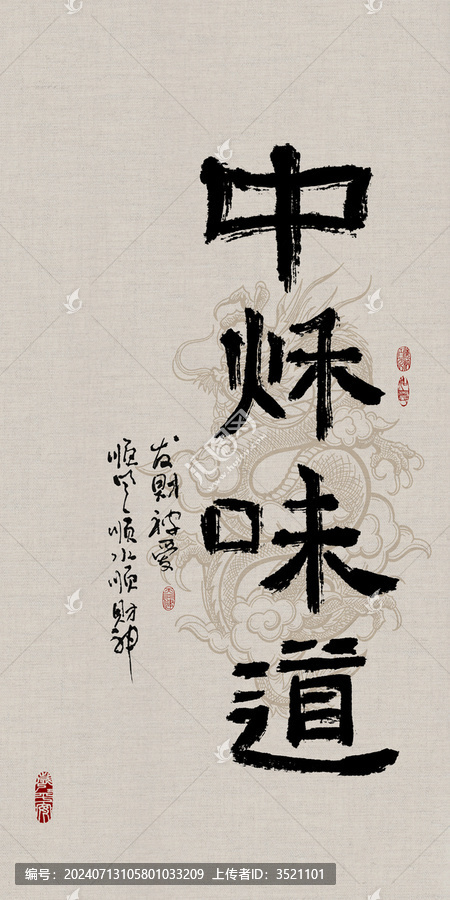 中秌味道
发财被爱
顺风顺水顺财神
编号：20240713105801033209 上传者ID：3521101